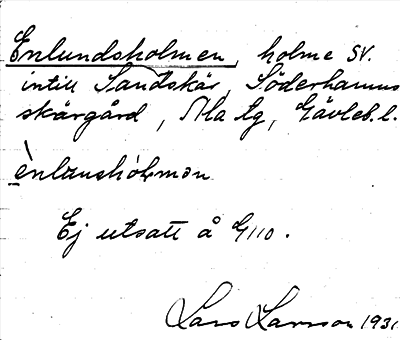 Enlundsholmen, holme SV.
intill Sandskär, Söderhamns
skärgård, Ala tg, Gävleb. l.
ènlunshòlmən
Ej utsatt å G110.
Lars Larsson 1931